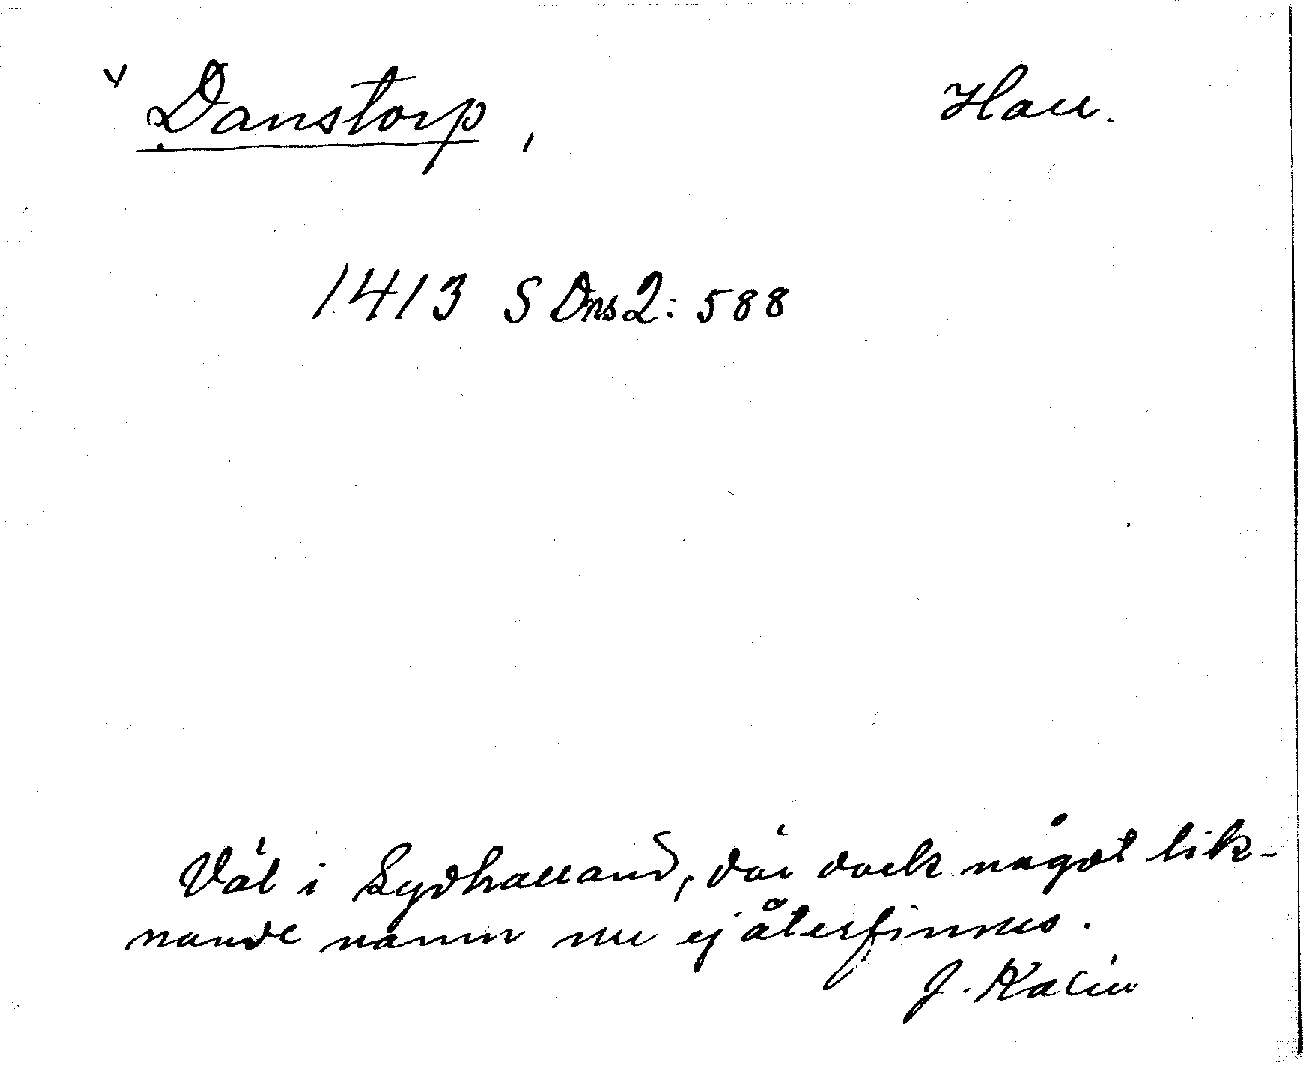 v Danstorp, Hall.
1413 S Dns 2: 588
Väl i Sydhalland, där dock något lik-
nande namn nu ej återfinnes.
J. Kalén